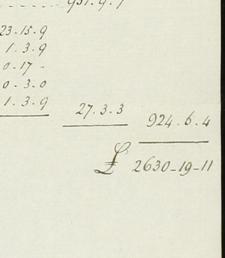 951.9.7
23.15.9
1.3.9
0.17 -
0.3.0
1.3.9
27.3.3
924.6.4
£ 2630-19-11